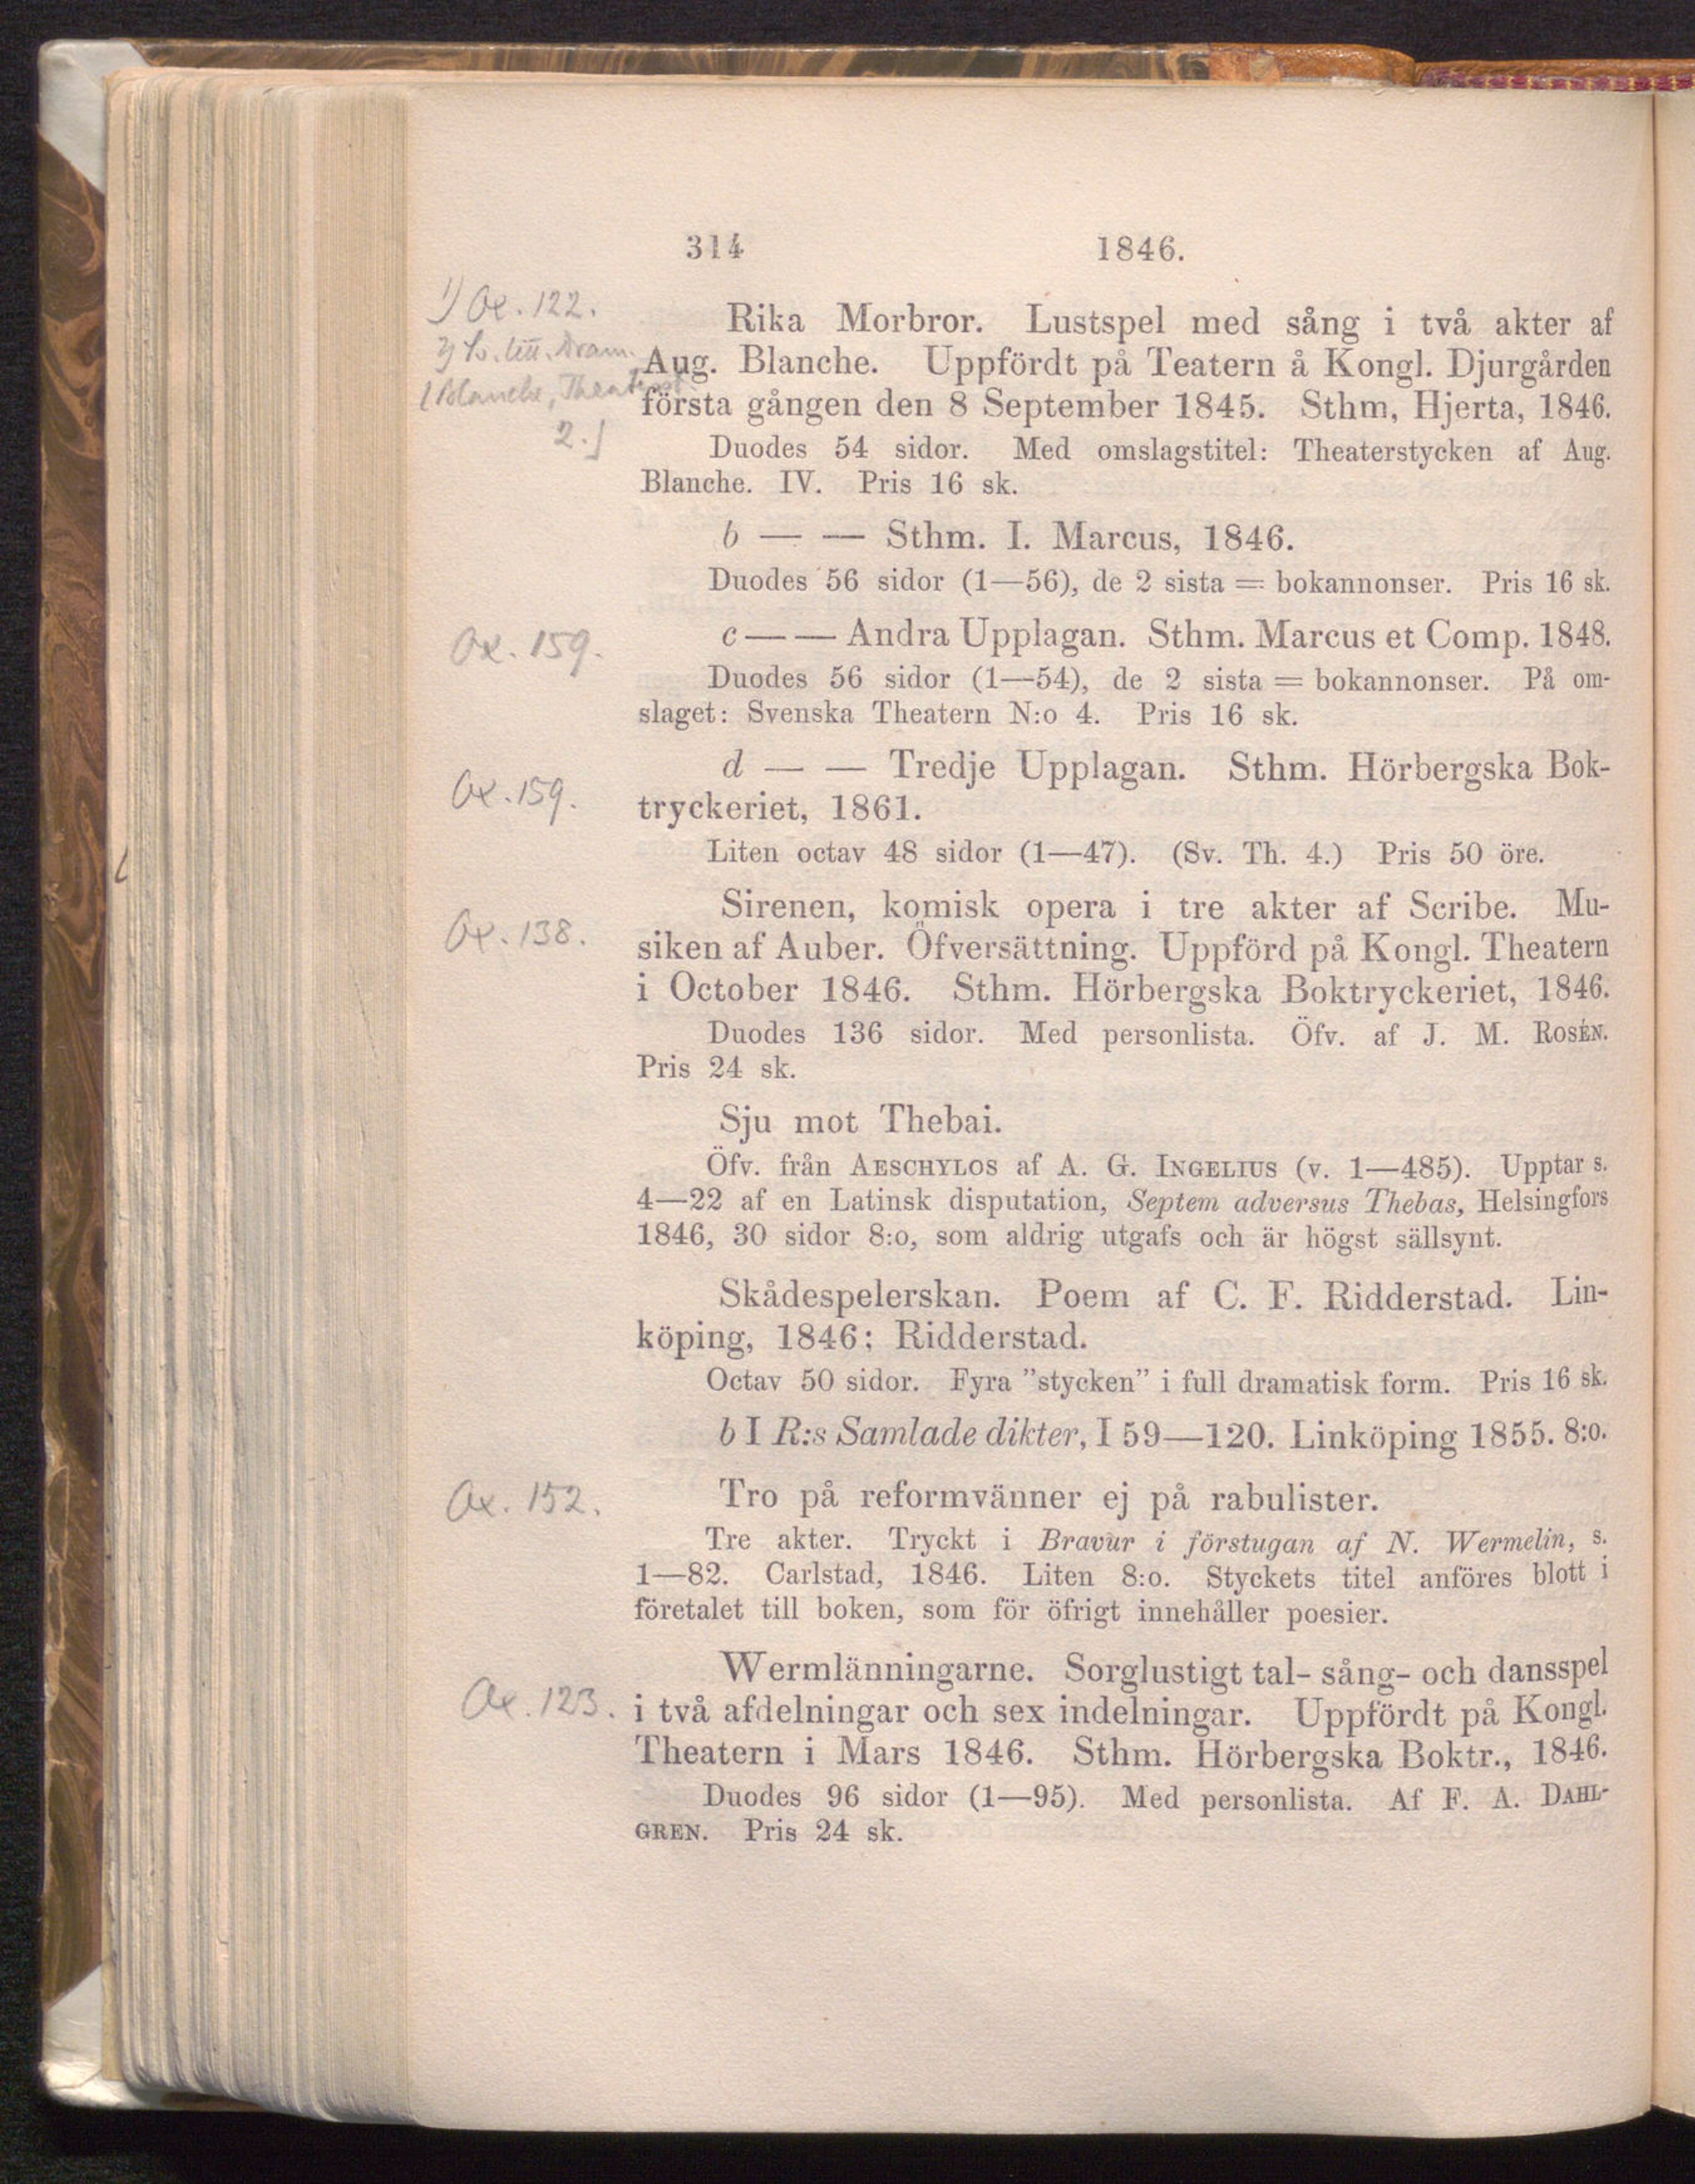 314 1846.
1) Ox. 122.
Rika Morbror. Lustspel med sång i två akter af
2) Sv. litt. Dram.
Aug. Blanche. Uppfördt på Teatern å Kongl. Djurgården
(Blanche,
första gången den 8 September 1845. Sthm, Hjerta, 1846.
2.]
Duodes 54 sidor. Med omslagstitel: Theaterstycken af Aug.
Blanche. IV. Pris 16 sk.
b — — Sthm. I. Marcus, 1846.
Duodes 56 sidor (1—56), de 2 sista = bokannonser. Pris 16 sk.
Ox. 159.
c — — Andra Upplagan. Sthm. Marcus et Comp. 1848.
Duodes 56 sidor (1—54), de 2 sista = bokannonser. På om-
slaget: Svenska Theatern N:o 4. Pris 16 sk.
d — — Tredje Upplagan. Sthm. Hörbergska Bok-
Ox. 159.
tryckeriet, 1861.
Liten octav 48 sidor (1—47). (Sv. Th. 4.) Pris 50 öre.
Sirenen, komisk opera i tre akter af Scribe. Mu-
Ox. 138.
siken af Auber. Öfversättning. Uppförd på Kongl. Theatern
i October 1846. Sthm. Hörbergska Boktryckeriet, 1846.
Duodes 136 sidor. Med personlista. Öfv. af J. M. ROSÉN.
Pris 24 sk.
Sju mot Thebai.
Öfv. från AESCHYLOS af A. G. INGELIUS (v. 1—485). Upptar s.
4—22 af en Latinsk disputation, Septem adversus Thebas, Helsingfors
1846, 30 sidor 8:o, som aldrig utgafs och är högst sällsynt.
Skådespelerskan. Poem af C. F. Ridderstad. Lin-
köping, 1846; Ridderstad.
Octav 50 sidor. Fyra ”stycken” i full dramatisk form. Pris 16 sk.
b I R:s Samlade dikter, I 59—120. Linköping 1855. 8:o.
Ox. 152.
Tro på reformvänner ej på rabulister.
Tre akter. Tryckt i Bravur i förstugan af N. Wermelin, s.
1—82. Carlstad, 1846. Liten 8:o. Styckets titel anföres blott i
företalet till boken, som för öfrigt innehåller poesier.
Wermlänningarne. Sorglustigt tal- sång- och dansspel
Ox. 123.
i två afdelningar och sex indelningar. Uppfördt på Kongl.
Theatern i Mars 1846. Sthm. Hörbergska Boktr., 1846.
Duodes 96 sidor (1—95). Med personlista. Af F. A. DAHL-
GREN. Pris 24 sk.